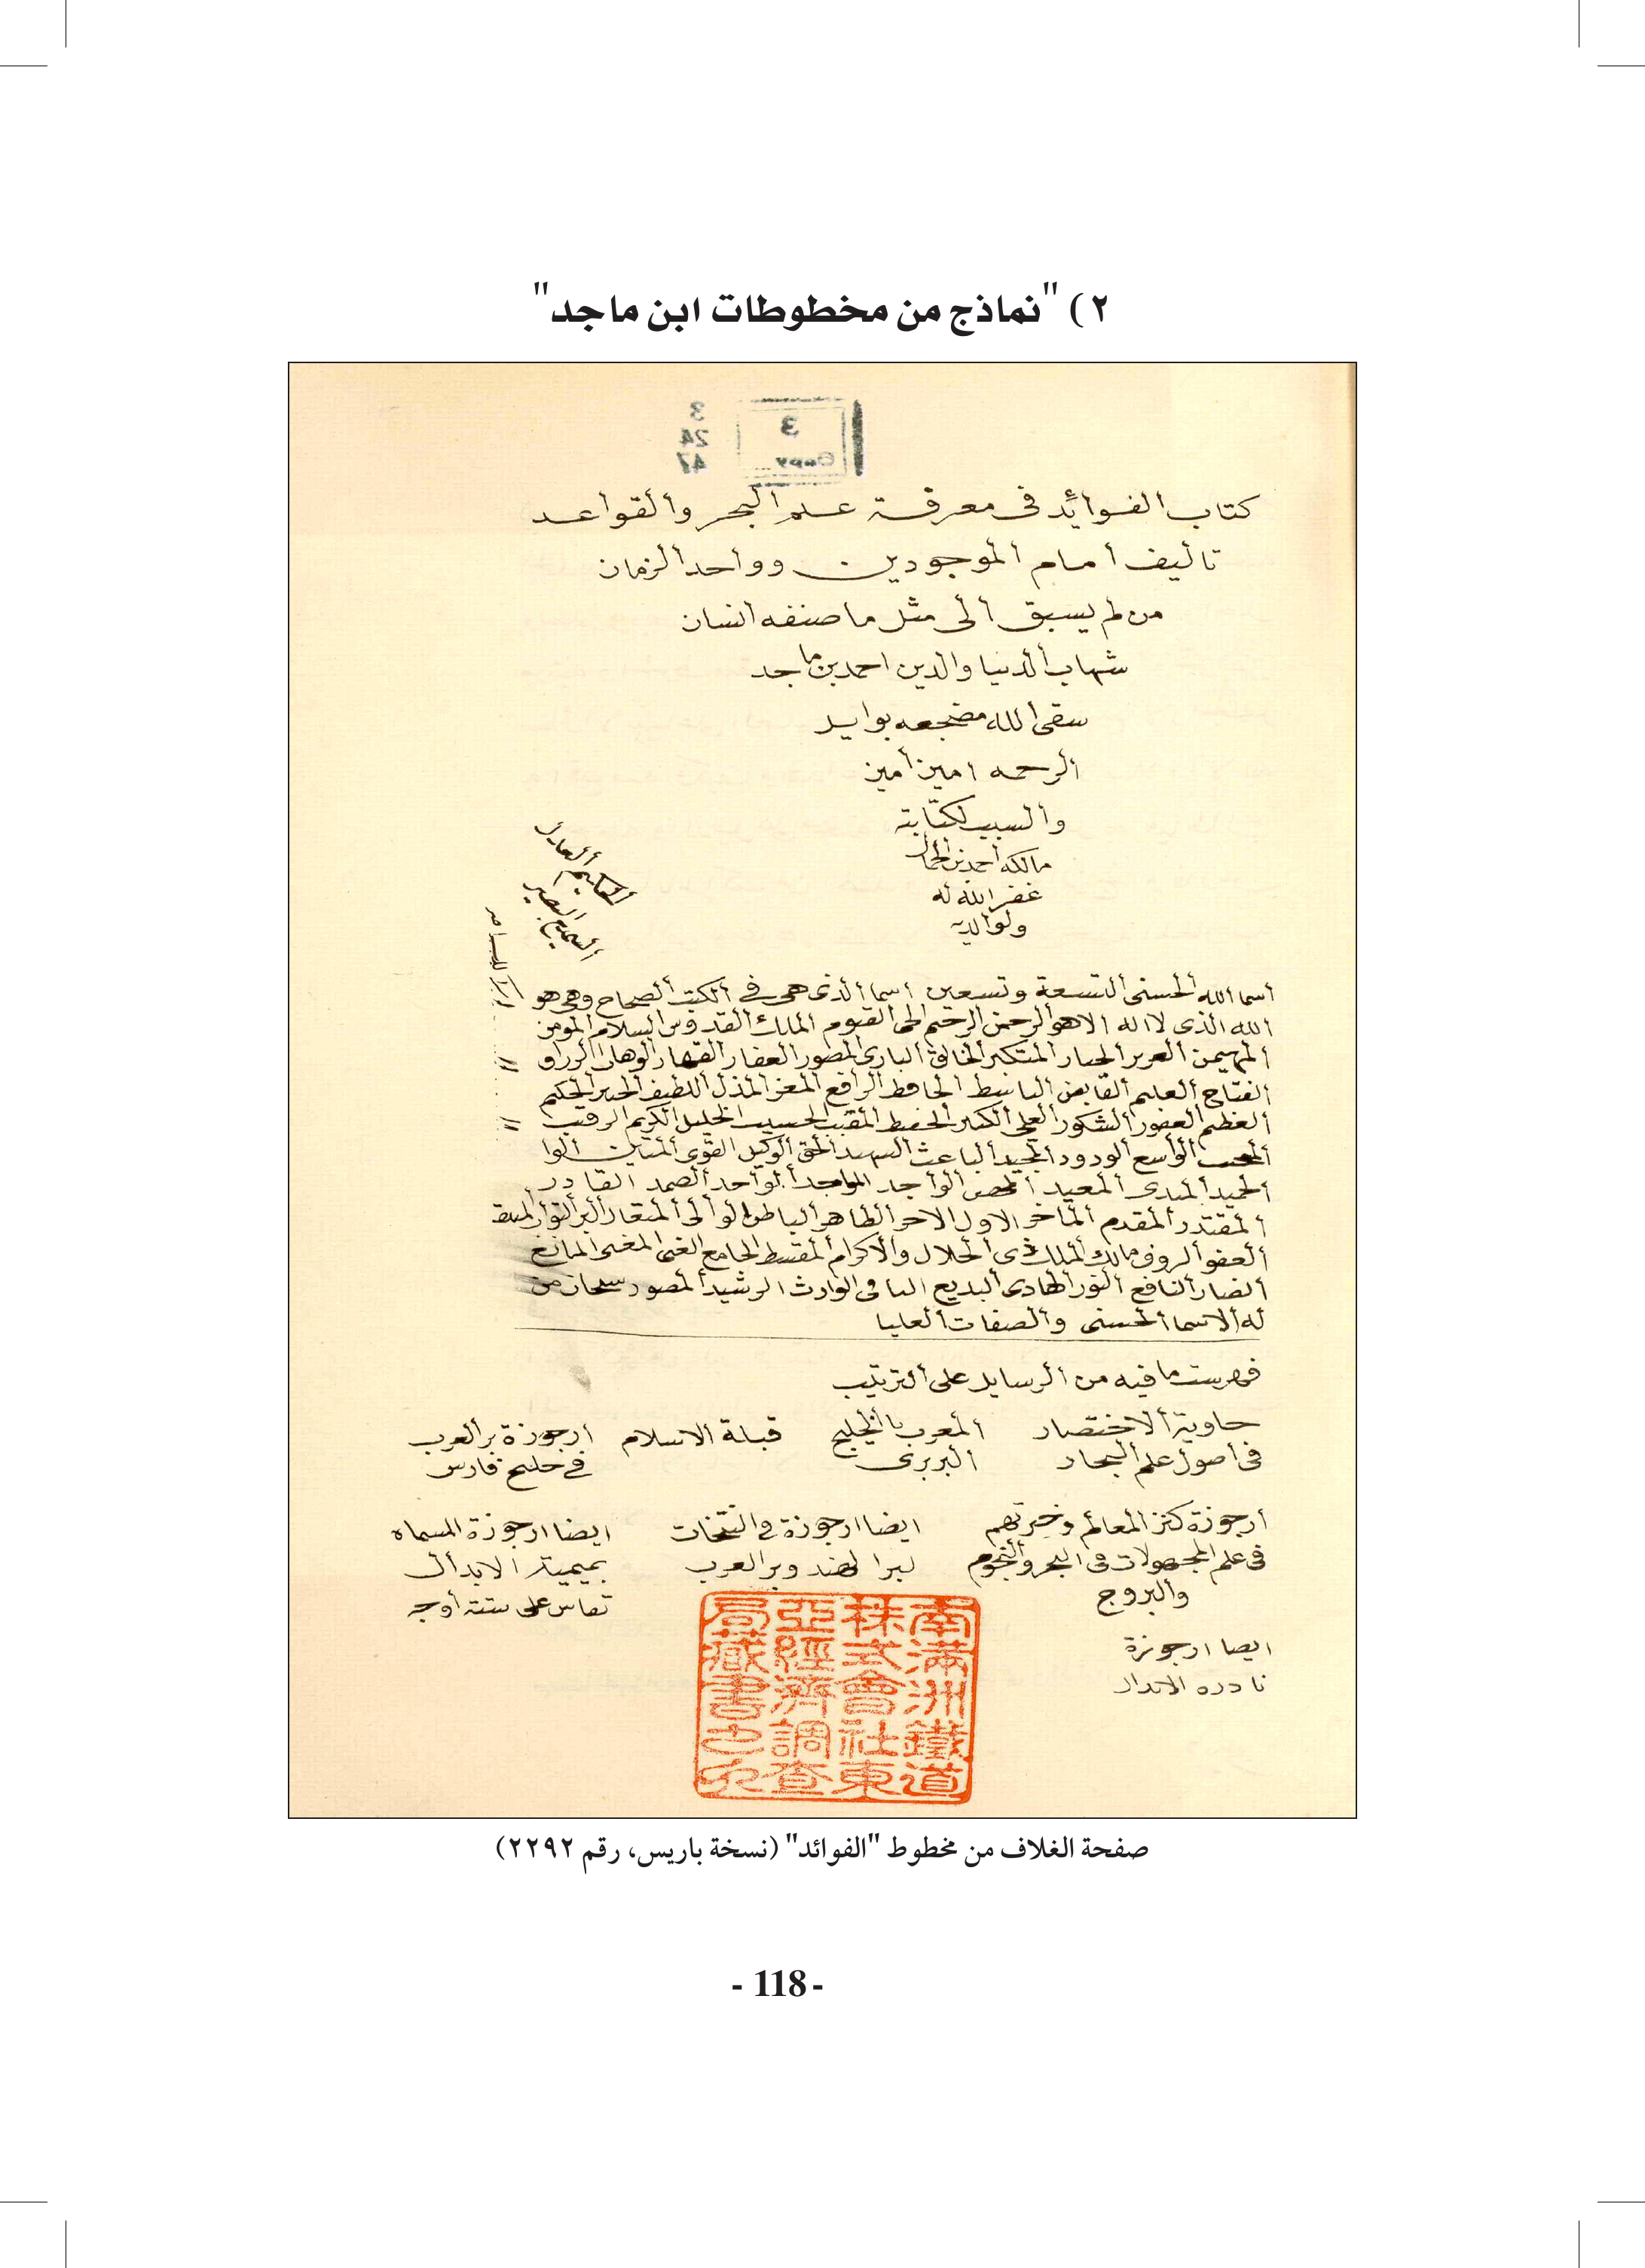 ٢) "نماذج من مخطوطات ابن ماجد"
3
24
47
3
Copy
كتاب الفوائد فى معرفة علم البحر والقواعد
تأليف امام الموجودين وواحد الزمان
من لم يسبق الى مثل ما صنفه انسان
شهاب الدنيا والدين احمد بن ماجد
سقى الله مضجعه بوابل
الرحمه امين امين
والسبب لكتابته
مالكه احمد بن
غفر الله له
ولوالديه
السميع البصير
اسما الله الحسنى التسعة وتسعين اسما الذى هى فى الكتب الصحاح وهى هو
الله الذى لا اله الا هو الرحمن الرحيم الحى القيوم الملك القدوس السلام المومن
المهيمن العزيز الجبار المتكبر الخالق البارى المصور الغفار القهار الوهاب الرزاق
الفتاح العليم القابض الباسط الحافظ الرافع المعز المذل اللطيف الخبير الحكيم
العظيم الغفور الشكور العلى الكبير الحفيظ المقيت الحسيب الجليل الكريم الرقيب
الواسع الودود المجيد الباعث الشهيد الحق الوكيل القوى المتين الوا
الحميد المبدى المعيد المحصى الواجد الماجد الواحد الصمد القادر
المقتدر المقدم الماخر الاول الاخر الظاهر الباطن الوالى المتعال البر التواب المنتقم
العفو الروف مالك الملك ذى الجلال والاكرام المقسط الجامع الغنى المغنى المانع
الضار النافع النور الهادى البديع الباقى الوارث الرشيد الصبور سبحان من
له الاسما الحسنى والصفات العليا
فهرست ما فيه من الرسايل على الترتيب
حاوية الاختصار المعرب بالخليج قبلة الاسلام ارجوزة بر العرب
فى اصول علم البحار البربرى فى خليج فارس
أرجوزة كنز المعالم وخيرتهم ايضا ارجوزة فى النتخات ايضا ارجوزة المسماه
فى علم المجهولات فى البحر والنجوم لبر الهند وبر العرب بميمية الابدال
والبروج تقاس على ستة أوجه
ايضا ارجوزة
نادرة الابدال
南滿洲鐵道
株式會社東
亞經濟調查
局藏書之印
صفحة الغلاف من مخطوط "الفوائد" (نسخة باريس، رقم ٢٢٩٢)
- 118 -